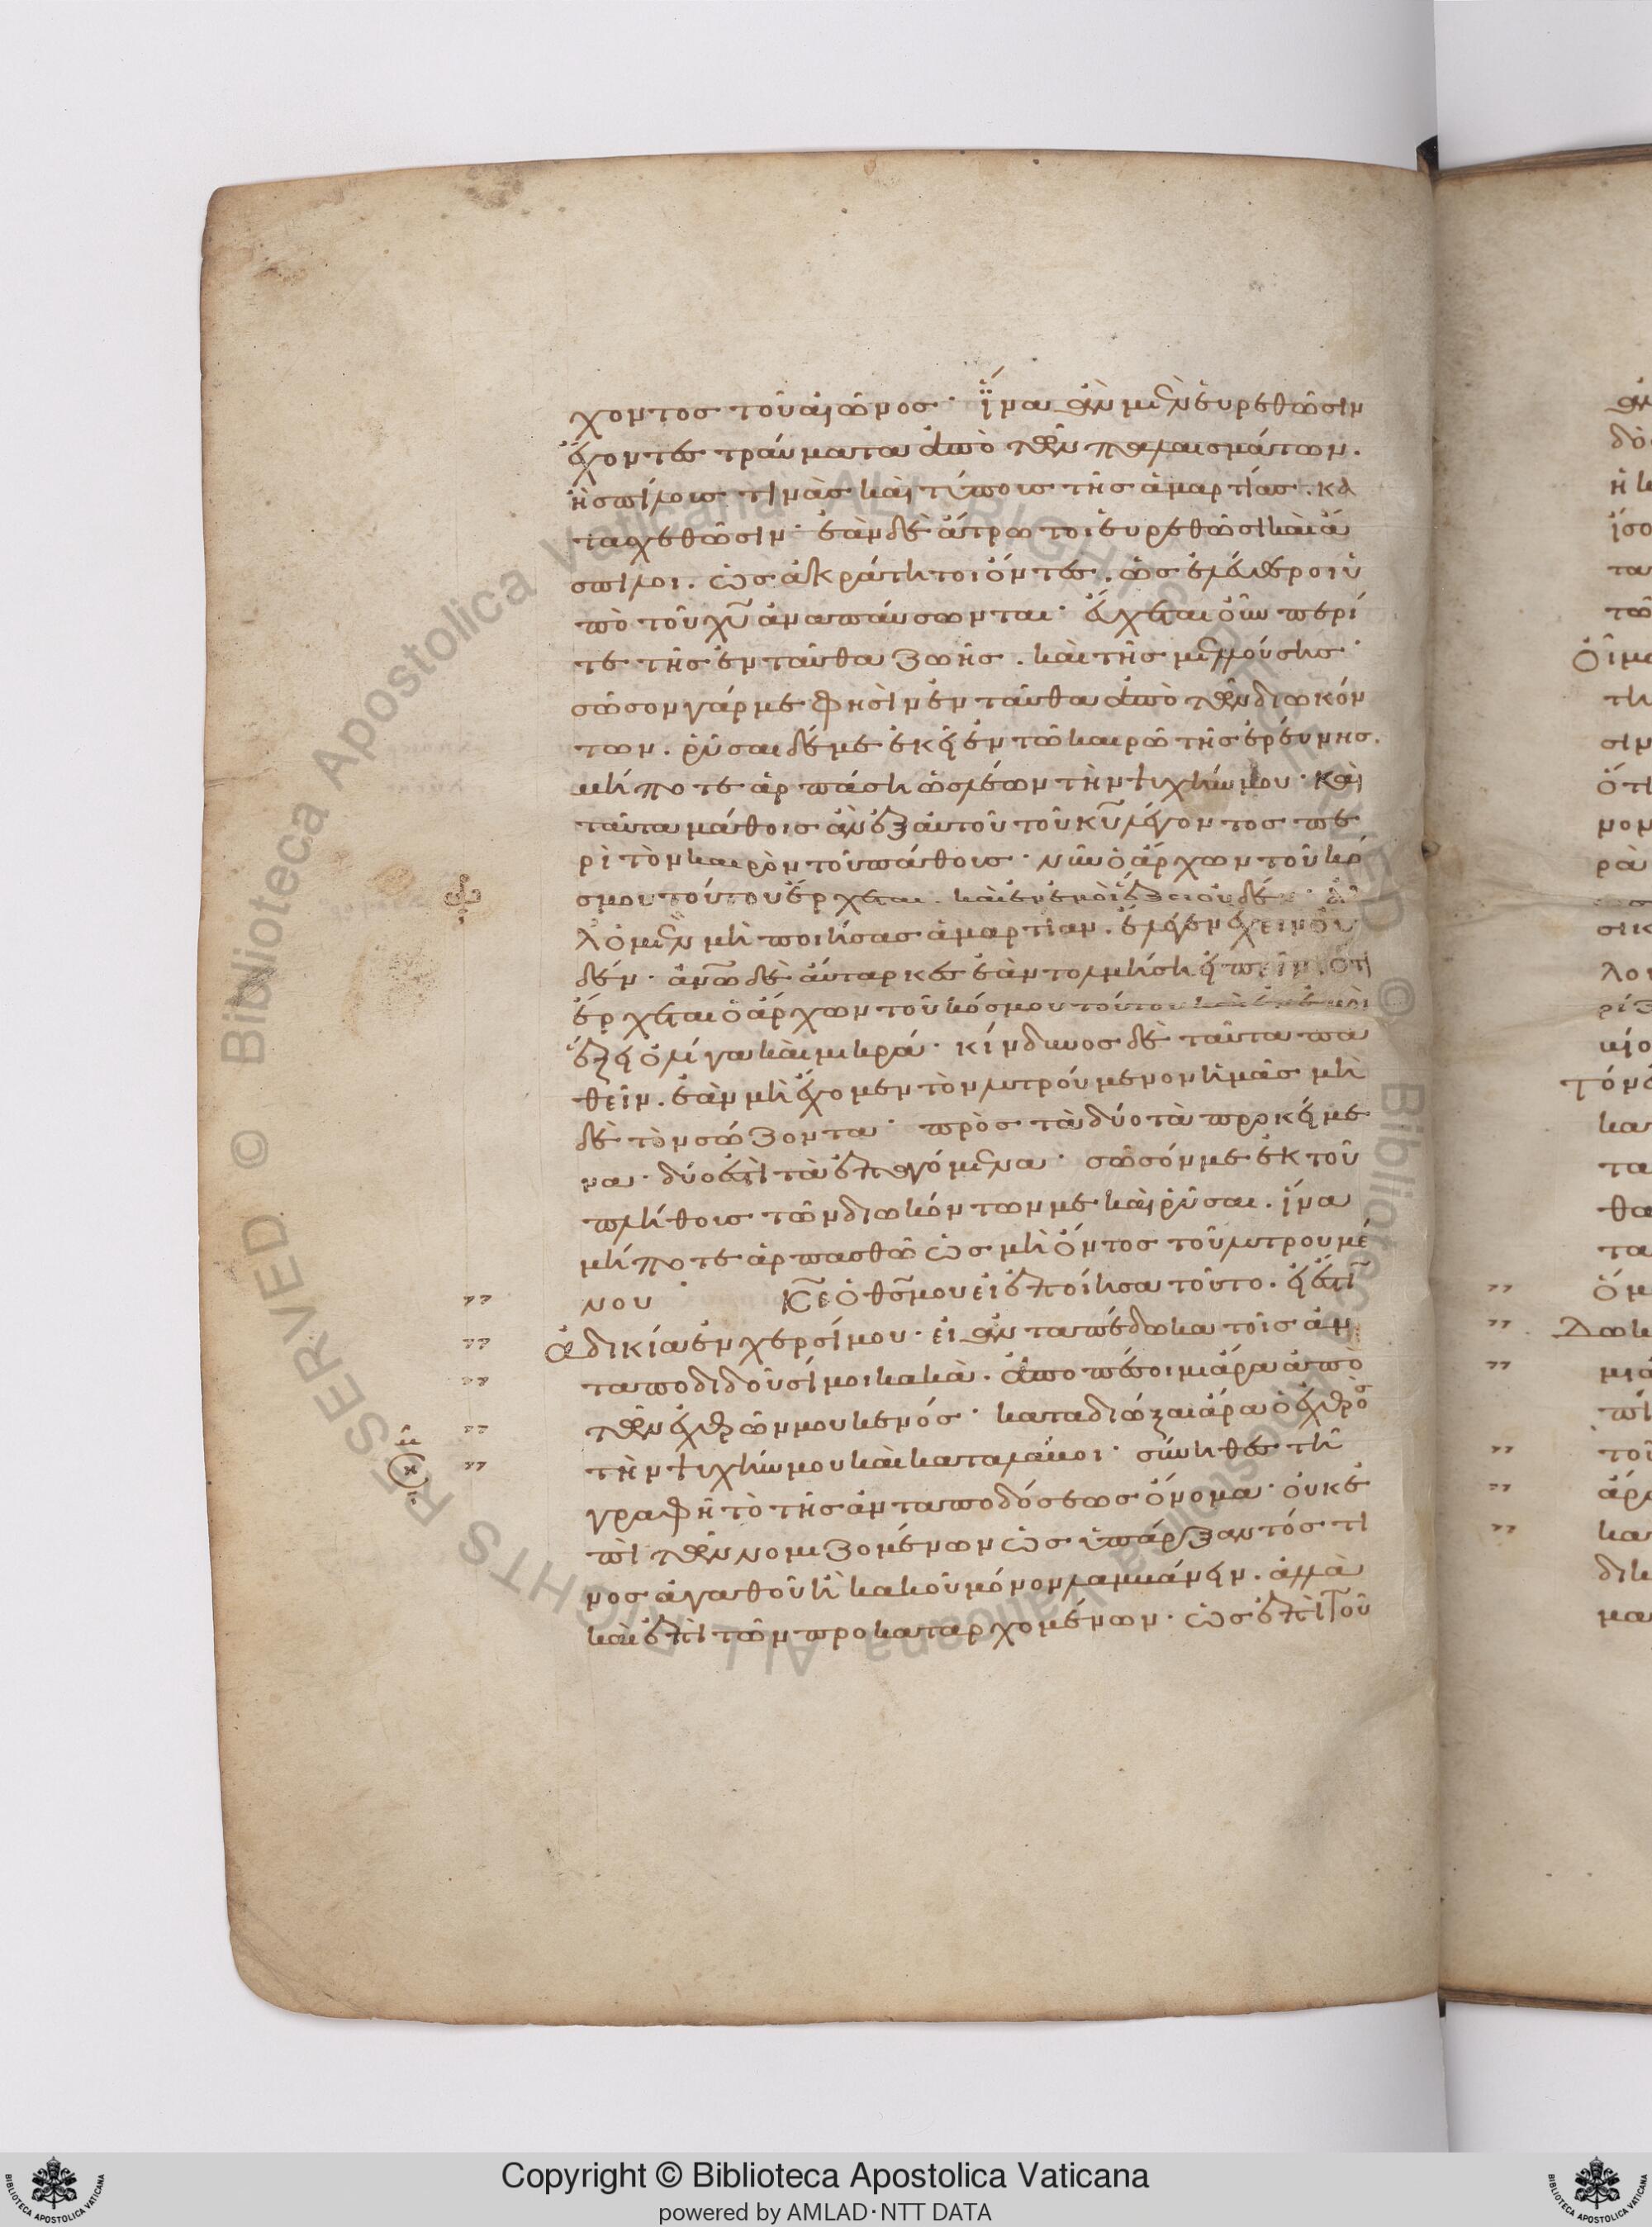 χοντος τοῦ αἰῶνος· ἵνα ἂν μὲν εὑρεθῶσιν
ἔχοντες τραύματα ἀπὸ τῶν παλαισμάτων.
ἢ σπίλους τινὰς καὶ τύπους τῆς ἁμαρτίας. κα
τασχεθῶσιν· ἐὰν δὲ ἄτρωτοι εὑρεθῶσι καὶ ἄ
σπιλοι. ὡς ἀκράτητοι ὄντες. ὡς ἐλεύθεροι ὑ
πὸ τοῦ χυ ἀναπαύσωνται· εὔχεται οὖν περί
τε τῆς ἐνταῦθα ζωῆς. καὶ τῆς μελλούσης·
σῶσον γάρ με φησὶν ἐνταῦθα ἀπὸ τῶν διωκόν
των. ῥῦσαι δέ με ἐκεῖ ἐν τῶ καιρῶ τῆς ἐρεύνης.
μήποτε ἁρπάση ὡς λέων τὴν ψυχήν μου· καὶ
ταῦτα μάθοις ἂν ἐξ αὐτοῦ τοῦ κυ λέγοντος πε
ρὶ τὸν καιρὸν τοῦ πάθους· νῦν ὁ ἄρχων τοῦ κό
σμου τούτου ἔρχεται. καὶ ἐν ἐμοὶ ἕξει οὐδέν·
λὁ μὲν μὴ ποιήσας ἁμαρτίαν. ἔλεγεν ἔχειν οὐ
δέν· ἀνω δὲ αὔταρκες ἐὰν τολμήση εἰπεῖν. ὅτι
ἔρχεται ὁ ἄρχων τοῦ κόσμου τούτου καὶ ἐν ἐμοὶ
ἕξει ὀλίγα καὶ μικρά· κίνδυνος δὲ ταῦτα πα
θεῖν. ἐὰν μὴ ἔχομεν τὸν λυτρούμενον ἡμᾶς μὴ
δὲ τὸν σώζοντα· πρὸς τὰ δύο τὰ προκείμε
να. δύο ἐστὶ τὰ ἐπαγόμενα· σῶσόν με ἐκ τοῦ
πλήθους τῶν διωκόντων με καὶ ῥῦσαι. ἵνα
μήποτε ἁρπασθῶ ὡς μὴ ὄντος τοῦ λυτρουμέ
νου κε ὁ θς μου εἰ ἐποίησα τοῦτο. εἰ ἔστιν
ἀδικία ἐν χερσί μου· εἰ ἀνταπέδωκα τοῖς ἀν
ταποδιδοῦσί μοι κακά. ἀποπέσοιμι ἄρα ἀπὸ
τῶν ἐχθρῶν μου κενός· καταδιώξαι ἄρα ὁ ἐχθρὸς
τὴν ψυχήν μου καὶ καταλάβοι· σύνηθες τῆ
γραφῆ τὸ τῆς ἀνταποδόσεως ὄνομα· οὐκ ἐ
πὶ τῶν νομιζομένων ὡς ὑπάρξαντός τι
νος ἀγαθοῦ ἢ κακοῦ μόνον λαμβάνειν. ἀλλὰ
καὶ ἐπὶ τῶν προκαταρχομένων· ὡς ἐπὶ τοῦ